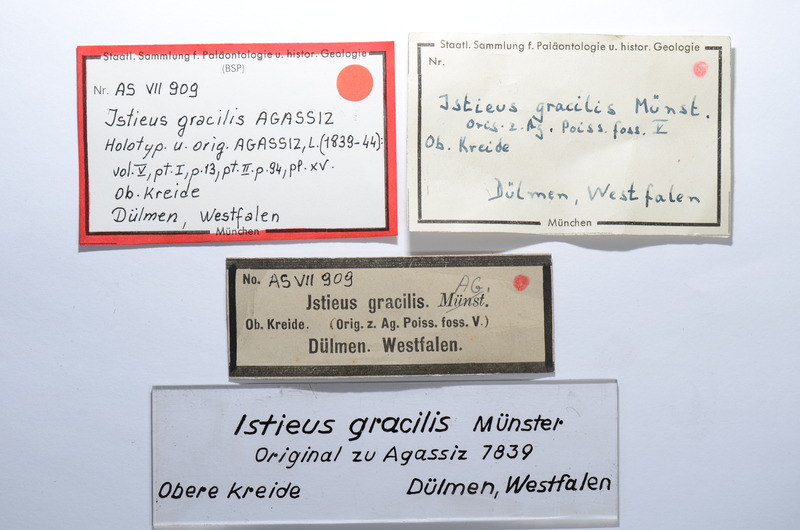 Staatl. Sammlung f. Paläontologie u. histor. Geologie
(BSP)
Nr. AS VII 909
Istieus gracilis AGASSIZ
Holotyp. u. orig. AGASSIZ, L. (1839-44):
vol. V, pt. I, p. 13, pt. II. p. 94, pl. XV.
Ob. Kreide
Dülmen, Westfalen
München
Staatl. Sammlung f. Paläontologie u. histor. Geologie
Nr.
Istieus gracilis Münst.
Orig. z. Ag. Poiss. foss. V
Ob. Kreide
Dülmen, Westfalen
München
No. AS VII 909
AG.
Istieus gracilis. Münst.
Ob. Kreide. (Orig. z. Ag. Poiss. foss. V.)
Dülmen. Westfalen.
Istieus gracilis Münster
Original zu Agassiz 7839
Obere Kreide Dülmen, Westfalen